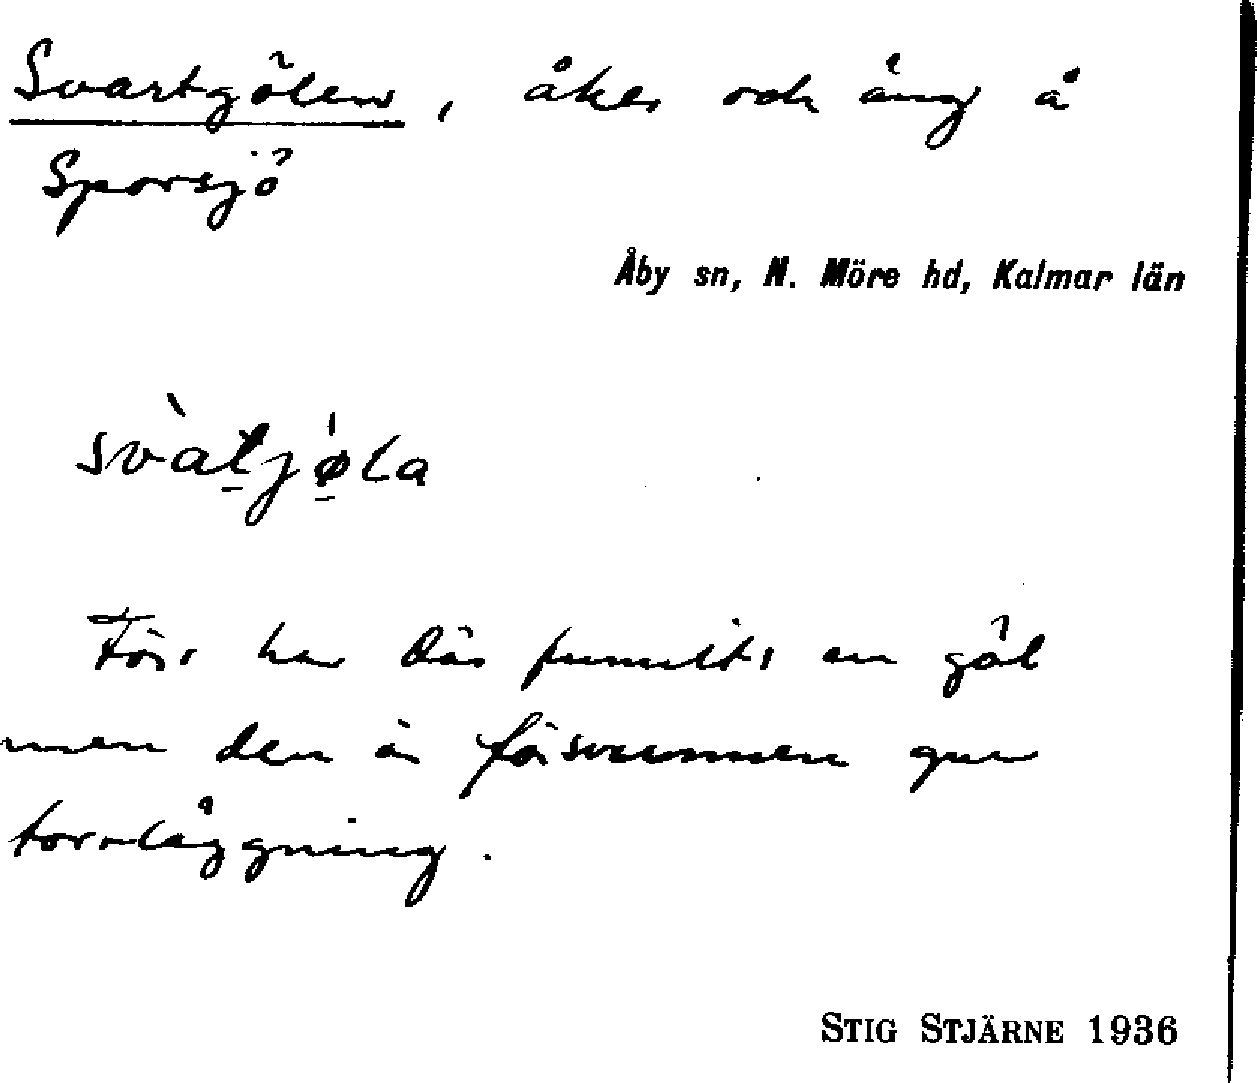 Svartgölen, åker och äng å
Sporsjö
Åby sn, N. Möre hd, Kalmar län
svàtjø̀la
Förr har där funnits en göl
men den är försvunnen gm
torrläggning.
STIG STJÄRNE 1936